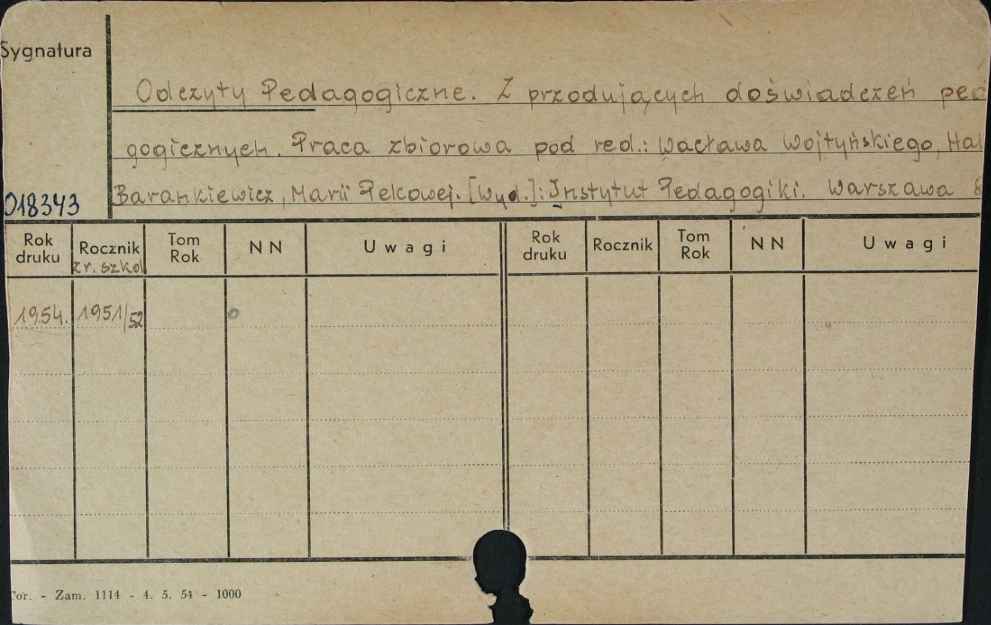 Sygnatura
Odczyty Pedagogiczne. Z przodujących doświadczeń peda
gogicznych. Praca zbiorowa pod red.: Wacława Wojtyńskiego, Hal
018343 Barankiewicz, Marii Pelcowej. [Wyd.]: Instytut Pedagogiki. Warszawa 8
Rok druku Rocznik Tom Rok NN Uwagi Rok druku Rocznik Tom Rok NN Uwagi
zr. szkol
1954. 1951/52 0
Tor. - Zam. 1114 - 4. 5. 54 - 1000